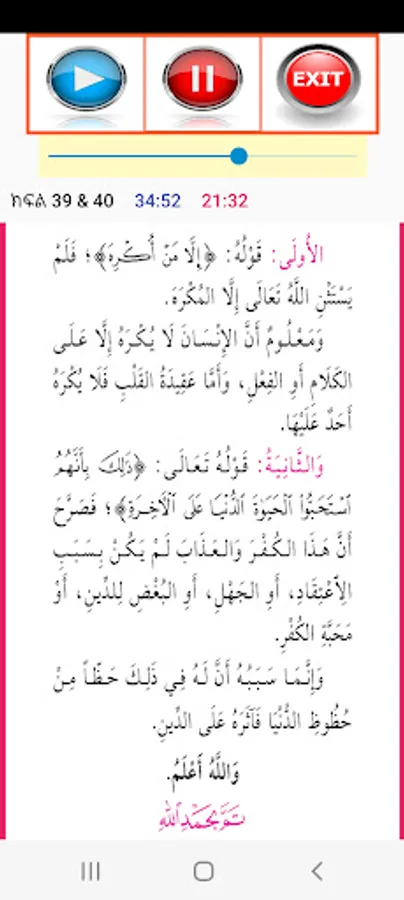 EXIT
ክፍል 39 & 40 34:52 21:32
الأُولَى: قَوْلُهُ: ﴿إِلَّا مَنْ أُكْرِهَ﴾؛ فَلَمْ
يَسْتَثْنِ اللَّهُ تَعَالَى إِلَّا المُكْرَهَ.
وَمَعْلُومٌ أَنَّ الإِنْسَانَ لَا يُكْرَهُ إِلَّا عَلَى
الكَلَامِ أَوِ الفِعْلِ، وَأَمَّا عَقِيدَةُ القَلْبِ فَلَا يُكْرَهُ
أَحَدٌ عَلَيْهَا.
وَالثَّانِيَةُ: قَوْلُهُ تَعَالَى: ﴿ذَلِكَ بِأَنَّهُمُ
ٱسْتَحَبُّوا۟ ٱلْحَيَوٰةَ ٱلدُّنْيَا عَلَى ٱلْآخِرَةِ﴾؛ فَصَرَّحَ
أَنَّ هَذَا الكُفْرَ وَالعَذَابَ لَمْ يَكُنْ بِسَبَبِ
الِاعْتِقَادِ، أَوِ الجَهْلِ، أَوِ البُغْضِ لِلدِّينِ، أَوْ
مَحَبَّةِ الكُفْرِ.
وَإِنَّمَا سَبَبُهُ أَنَّ لَهُ فِي ذَلِكَ حَظّاً مِنْ
حُظُوظِ الدُّنْيَا فَآثَرَهُ عَلَى الدِّينِ.
وَاللَّهُ أَعْلَمُ.
تَمَّ بِحَمْدِ اللَّهِ